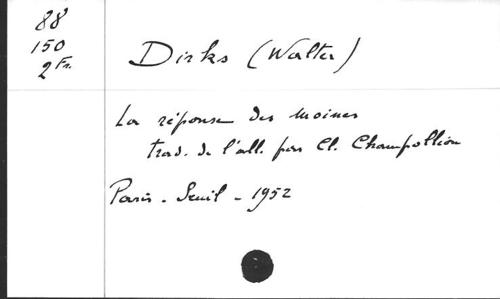 88
150
2 Fr.
Dirks (Walter)
La réponse des moines
trad. de l'all. par Cl. Champollion
Paris - Seuil - 1952